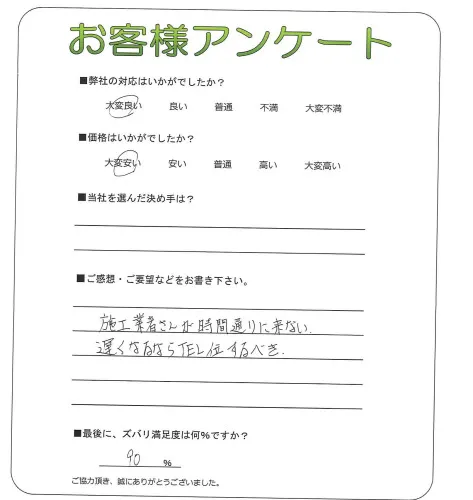 お客様アンケート
■弊社の対応はいかがでしたか?
大変良い 良い 普通 不満 大変不満
■価格はいかがでしたか?
大変安い 安い 普通 高い 大変高い
■当社を選んだ決め手は?
■ご感想・ご要望などをお書き下さい。
施工業者さんが時間通りに来ない.
遅くなるならTEL位するべき.
■最後に、ズバリ満足度は何%ですか?
90 %
ご協力頂き、誠にありがとうございました。